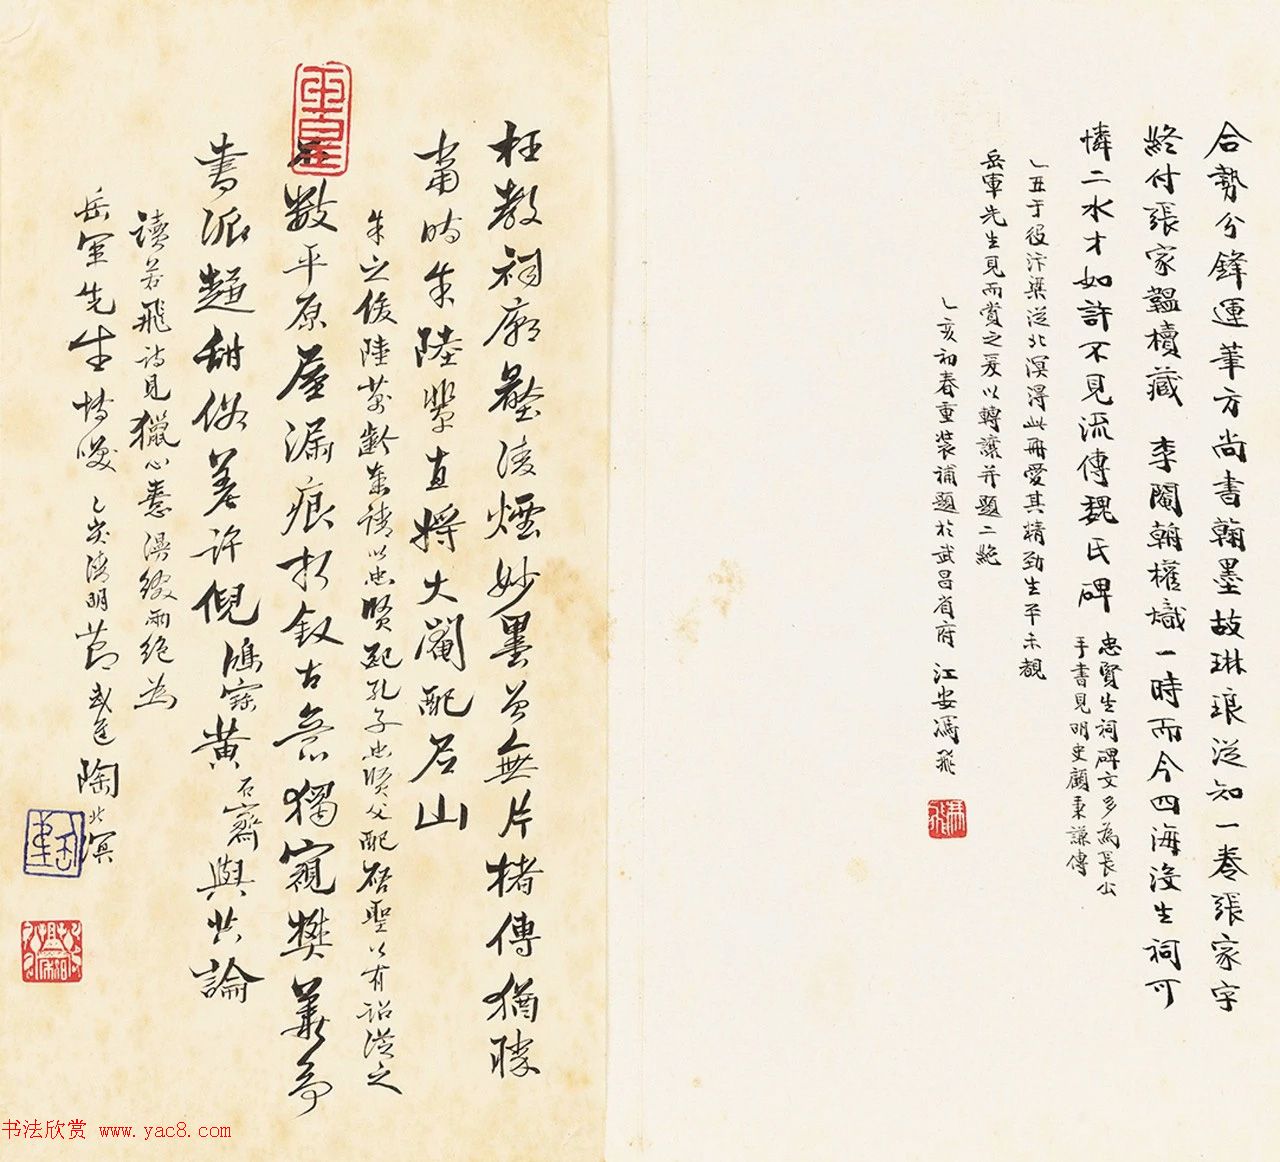 合勢分鋒運筆方尚書翰墨故琳琅從知一卷張家字
終付張家韞櫝藏 李閹翰權熾一時而今四海沒生祠可
憐二水才如許不見流傳魏氏碑
忠賢生祠碑文多為長公
手書見明史顧秉謙傳
乙丑于役汴梁從北溟得此冊愛其精勁生平未覩
岳軍先生見而賞之爰以轉讓并題二絕
乙亥初春重裝補題於武昌省府 江安馮飛
枉教祠廟凌煙妙墨曾無片楮傳猶勝
當時朱陸輩直將大閹配尼山
朱之俊陸萬齡奏請以忠賢配孔子忠賢父配啟聖以有詔從之
數平原屋漏痕折釵古意獨窺樊華亭
書派趨甜俗差許倪鴻寶黃石齋與共論
讀若飛詩見獵心喜漫綴兩絕為
岳軍先生博嗳 乙亥清明節武進陶北溟
书法欣赏 www.yac8.com